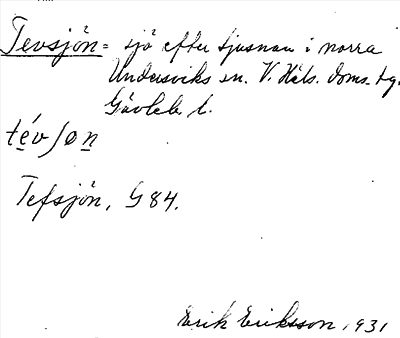 Tevsjön = sjö efter Ljusnan i norra
Undersviks sn. V. Häls. doms. tg.
Gävleb. l.
tévʃøn
Tefsjön, G 84.
Erik Eriksson, 1931